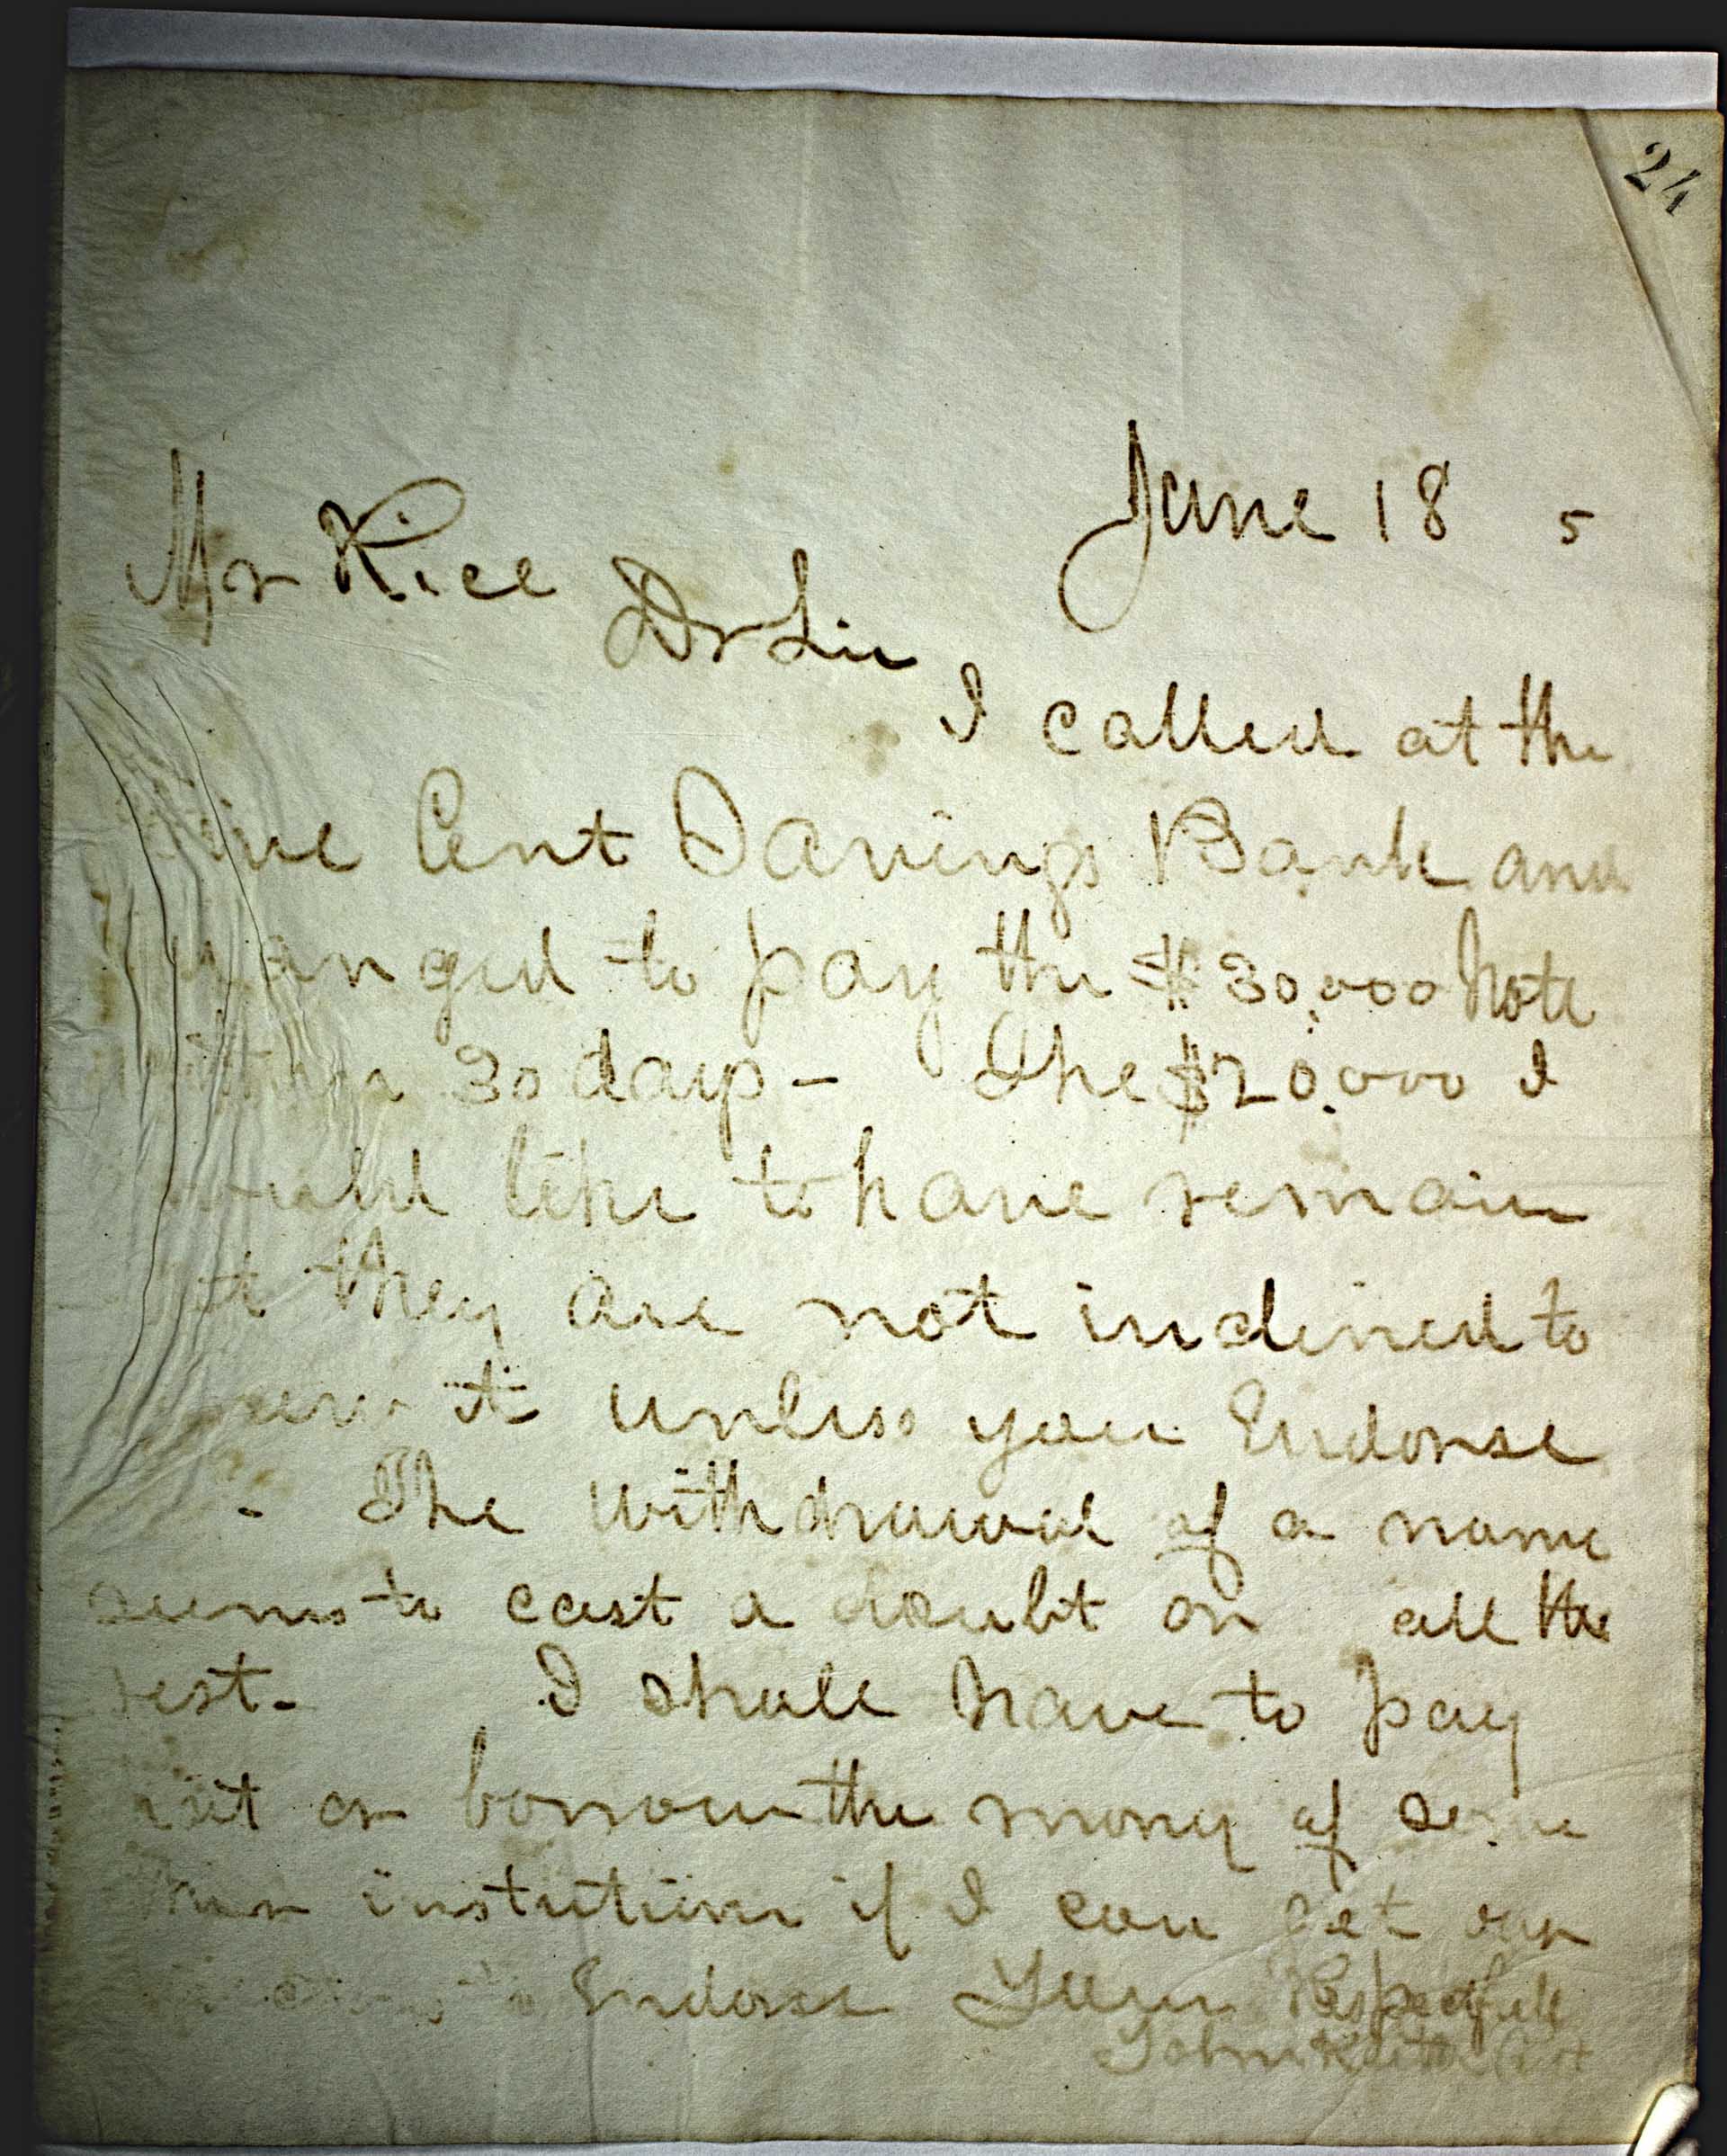 24
June 18 5
Mr Rice
Dr Sir
I called at the
Five Cent Savings Bank and
arranged to pay the $30,000 Note
within 30 days - The $20,000 I
would like to have remain
but they are not inclined to
renew it unless you Endorse
- The withdrawal of a name
seems to cast a doubt on all the
rest - I shall have to pay
it or borrow the mony of some
other instutution if I can get our
to Endorse Yours Respectfull
John Keith